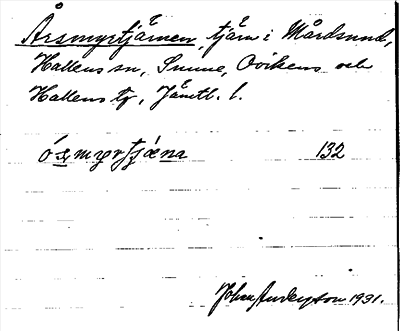 Årsmyrtjärnen, tjärn i Mårdsund,
Hallens sn, Sunne, Ovikens och
Hallens tg, Jämtl. l.
132
Johan Anderson 1931.